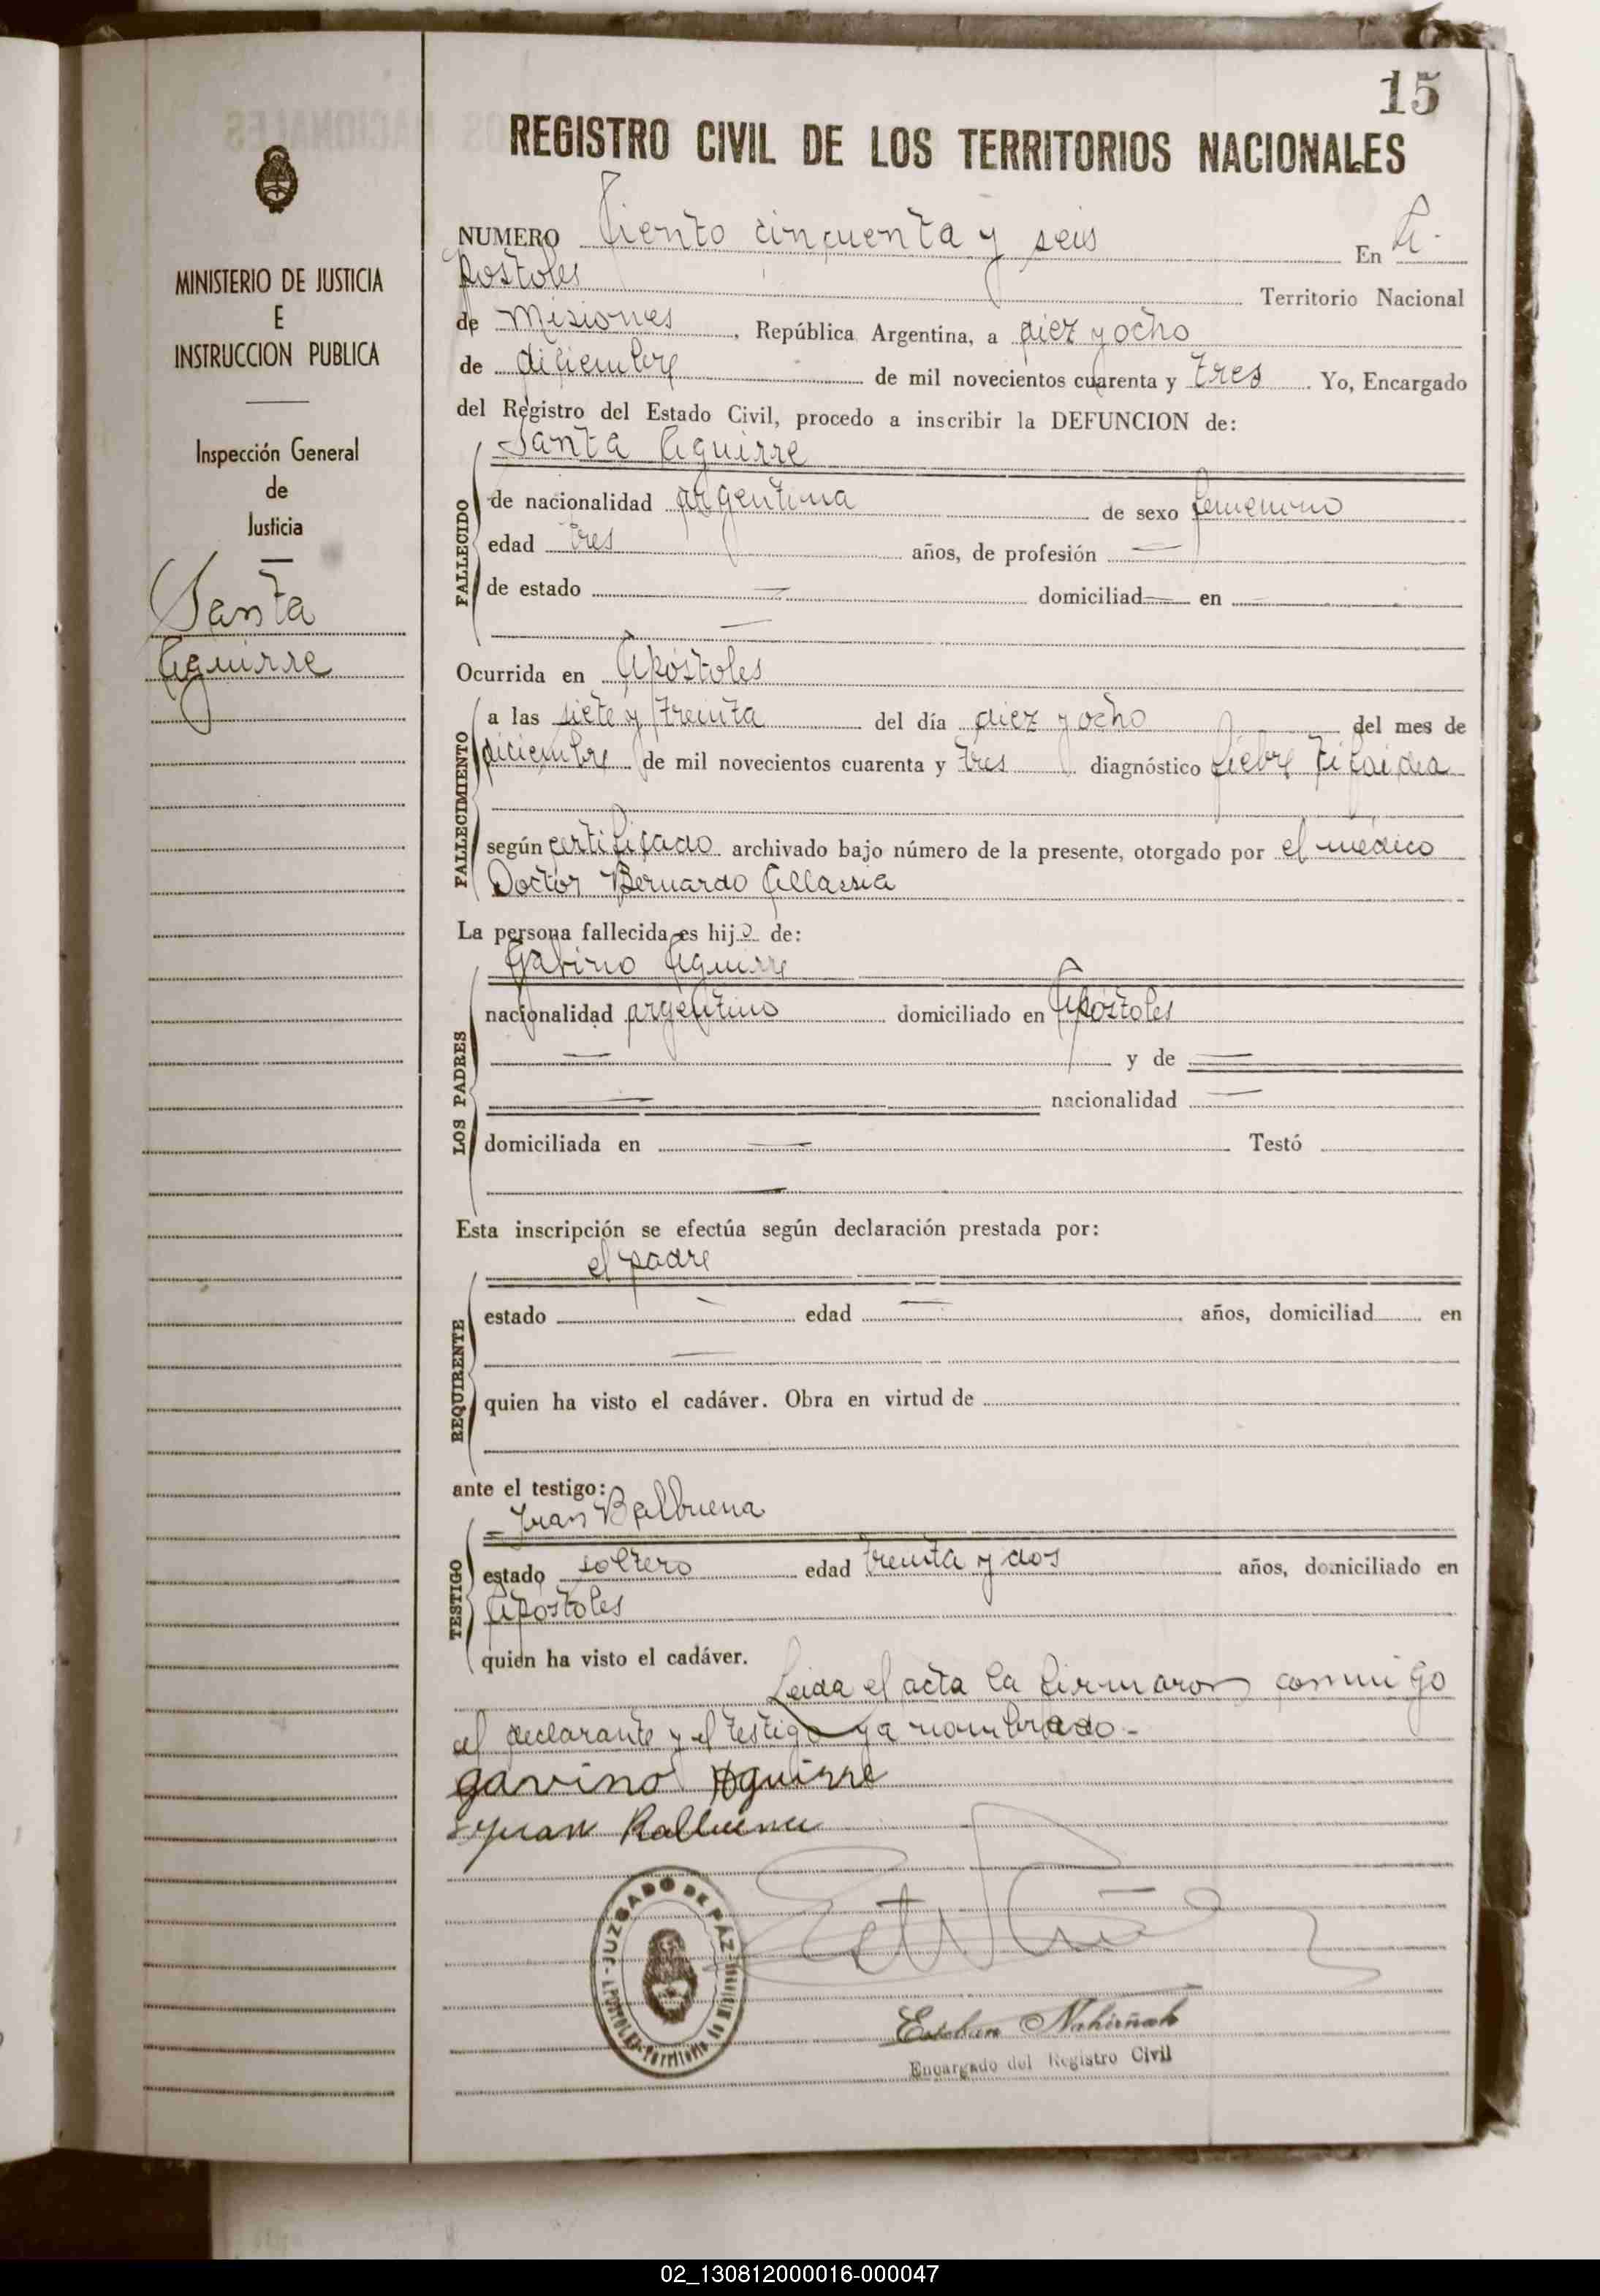 15
REGISTRO CIVIL DE LOS TERRITORIOS NACIONALES
MINISTERIO DE JUSTICIA
E
INSTRUCCION PUBLICA
Inspección General
de
Justicia
Santa
Aguirre
NUMERO Ciento cincuenta y seis En A-
postoles Territorio Nacional
de Misiones, República Argentina, a diez y ocho
de diciembre de mil novecientos cuarenta y tres Yo, Encargado
del Registro del Estado Civil, procedo a inscribir la DEFUNCION de:
Santa Aguirre
FALLECIDO
de nacionalidad argentina de sexo femenino
edad tres años, de profesión —
de estado — domiciliad— en —
—
Ocurrida en Apóstoles
FALLECIMIENTO
a las siete y treinta del día diez y ocho del mes de
diciembre de mil novecientos cuarenta y tres diagnóstico fiebre tifoidea
según certificado archivado bajo número de la presente, otorgado por el médico
Doctor Bernardo Allassia
La persona fallecida es hija de:
Gabino Aguirre
LOS PADRES
nacionalidad argentino domiciliado en Apóstoles
— y de —
— nacionalidad —
domiciliada en — Testó
—
Esta inscripción se efectúa según declaración prestada por:
el padre
REQUIRENTE
estado — edad — años, domiciliad en
—
quien ha visto el cadáver. Obra en virtud de
ante el testigo:
Juan Balbuena
TESTIGO
estado soltero edad treinta y dos años, domiciliado en
Apóstoles
quien ha visto el cadáver.
Leida el acta la firmaron conmigo
el declarante y el testigo ya nombrado.-
gavino Aguirre
Juan Balbuena
JUZGADO DE PAZ
APOSTOLES - Territorio de Misiones
Esteban Nahirñak
Encargado del Registro Civil
02_130812000016-000047